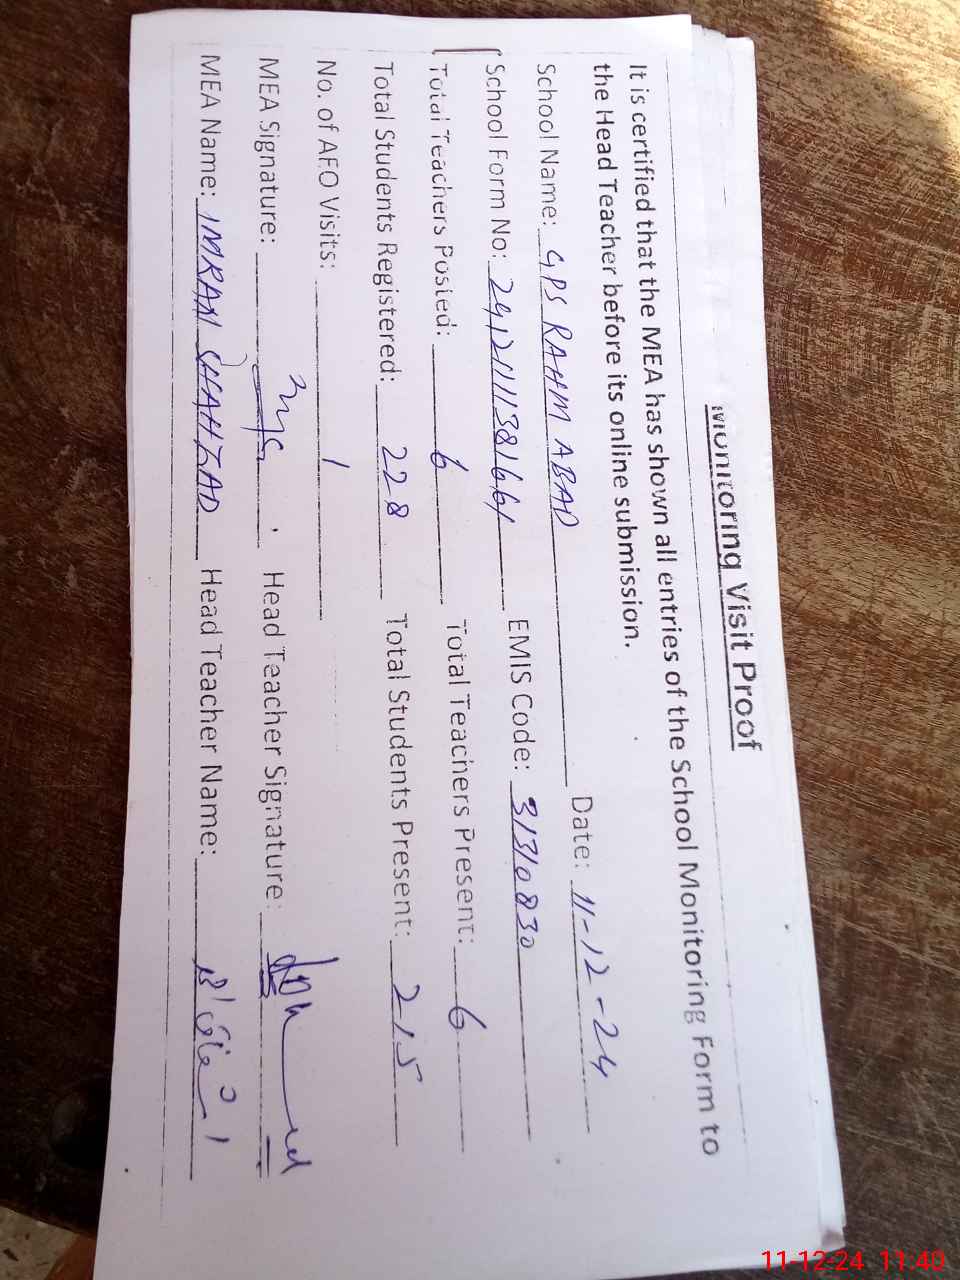 Monitoring Visit Proof
It is certified that the MEA has shown all entries of the School Monitoring Form to
the Head Teacher before its online submission.
School Name: GPS RAHM ABAD Date: 11-12-24
School Form No: EMIS Code: 31310830
Total Teachers Posted: 6 Total Teachers Present: 6
Total Students Registered: 228 Total Students Present: 215
No. of AEO Visits: 1
MEA Signature: Head Teacher Signature:
MEA Name: IMRAN SHAHZAD Head Teacher Name:
11-12-24 11:40